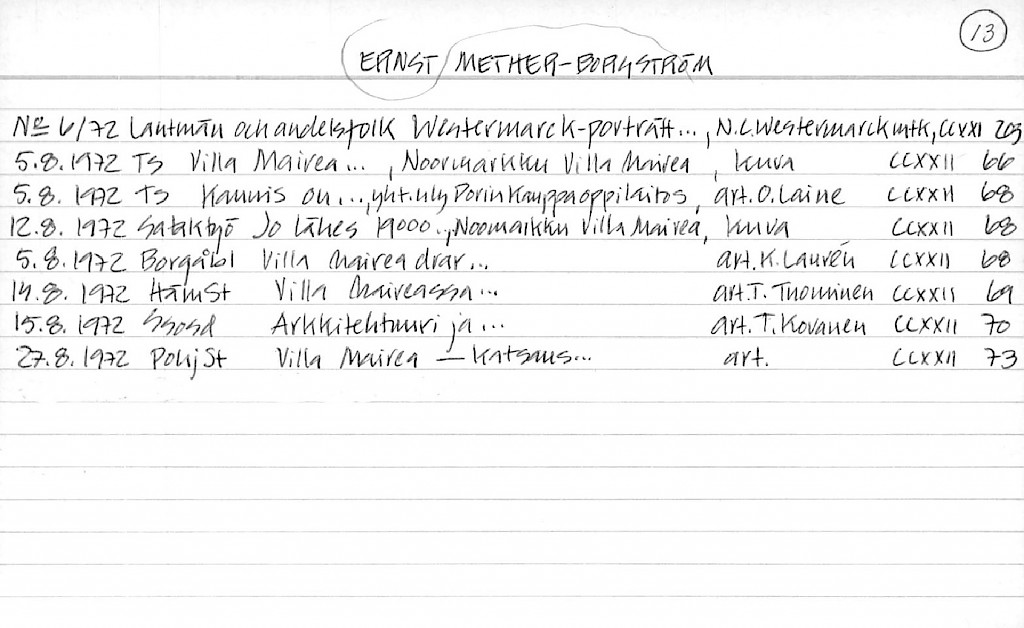 13
ERNST METHER-BORGSTRÖM
No 6/72 Lantmän och andelsfolk Westermarck-porträtt..., N.C.Westermarck mtk, CCXXI 203
5.8.1972 TS Villa Mairea..., Noormarkku Villa Mairea, kuva CCXXII 66
5.8.1972 TS Kaunis on..., yht.näy Porin Kauppaoppilaitos, art.O.Laine CCXXII 68
12.8.1972 Sataktyö Jo lähes 19000.., Noormarkku Villa Mairea, kuva CCXXII 68
5.8.1972 Borgåbl Villa Mairea drar... art.K.Laurén CCXXII 68
14.8.1972 HämSt Villa Maireassa... art.T.Tuominen CCXXII 69
15.8.1972 Arkkitehtuuri ja... art.T.Kovanen CCXXII 70
27.8.1972 PohjSt Villa Mairea – katsaus... art. CCXXII 73